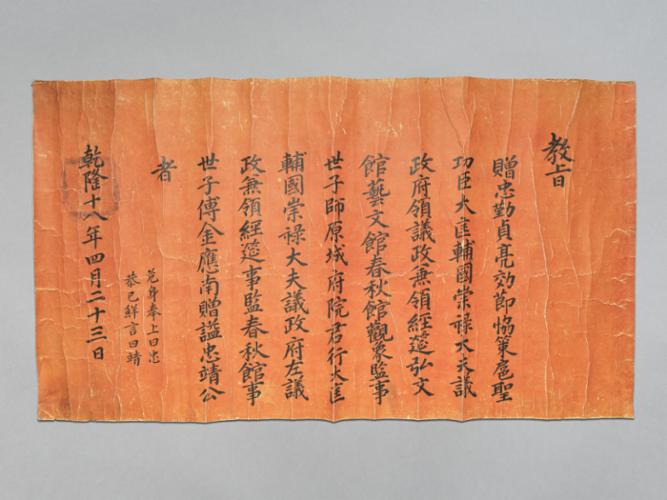 教旨
贈忠勤貞亮效節協策扈聖
功臣大匡輔國崇祿大夫議
政府領議政兼領經筵弘文
館藝文館春秋館觀象監事
世子師原城府院君行大匡
輔國崇祿大夫議政府左議
政兼領經筵事監春秋館事
世子傅金應南贈諡忠靖公
者
危身奉上曰忠
恭己鮮言曰靖
乾隆十八年四月二十三日